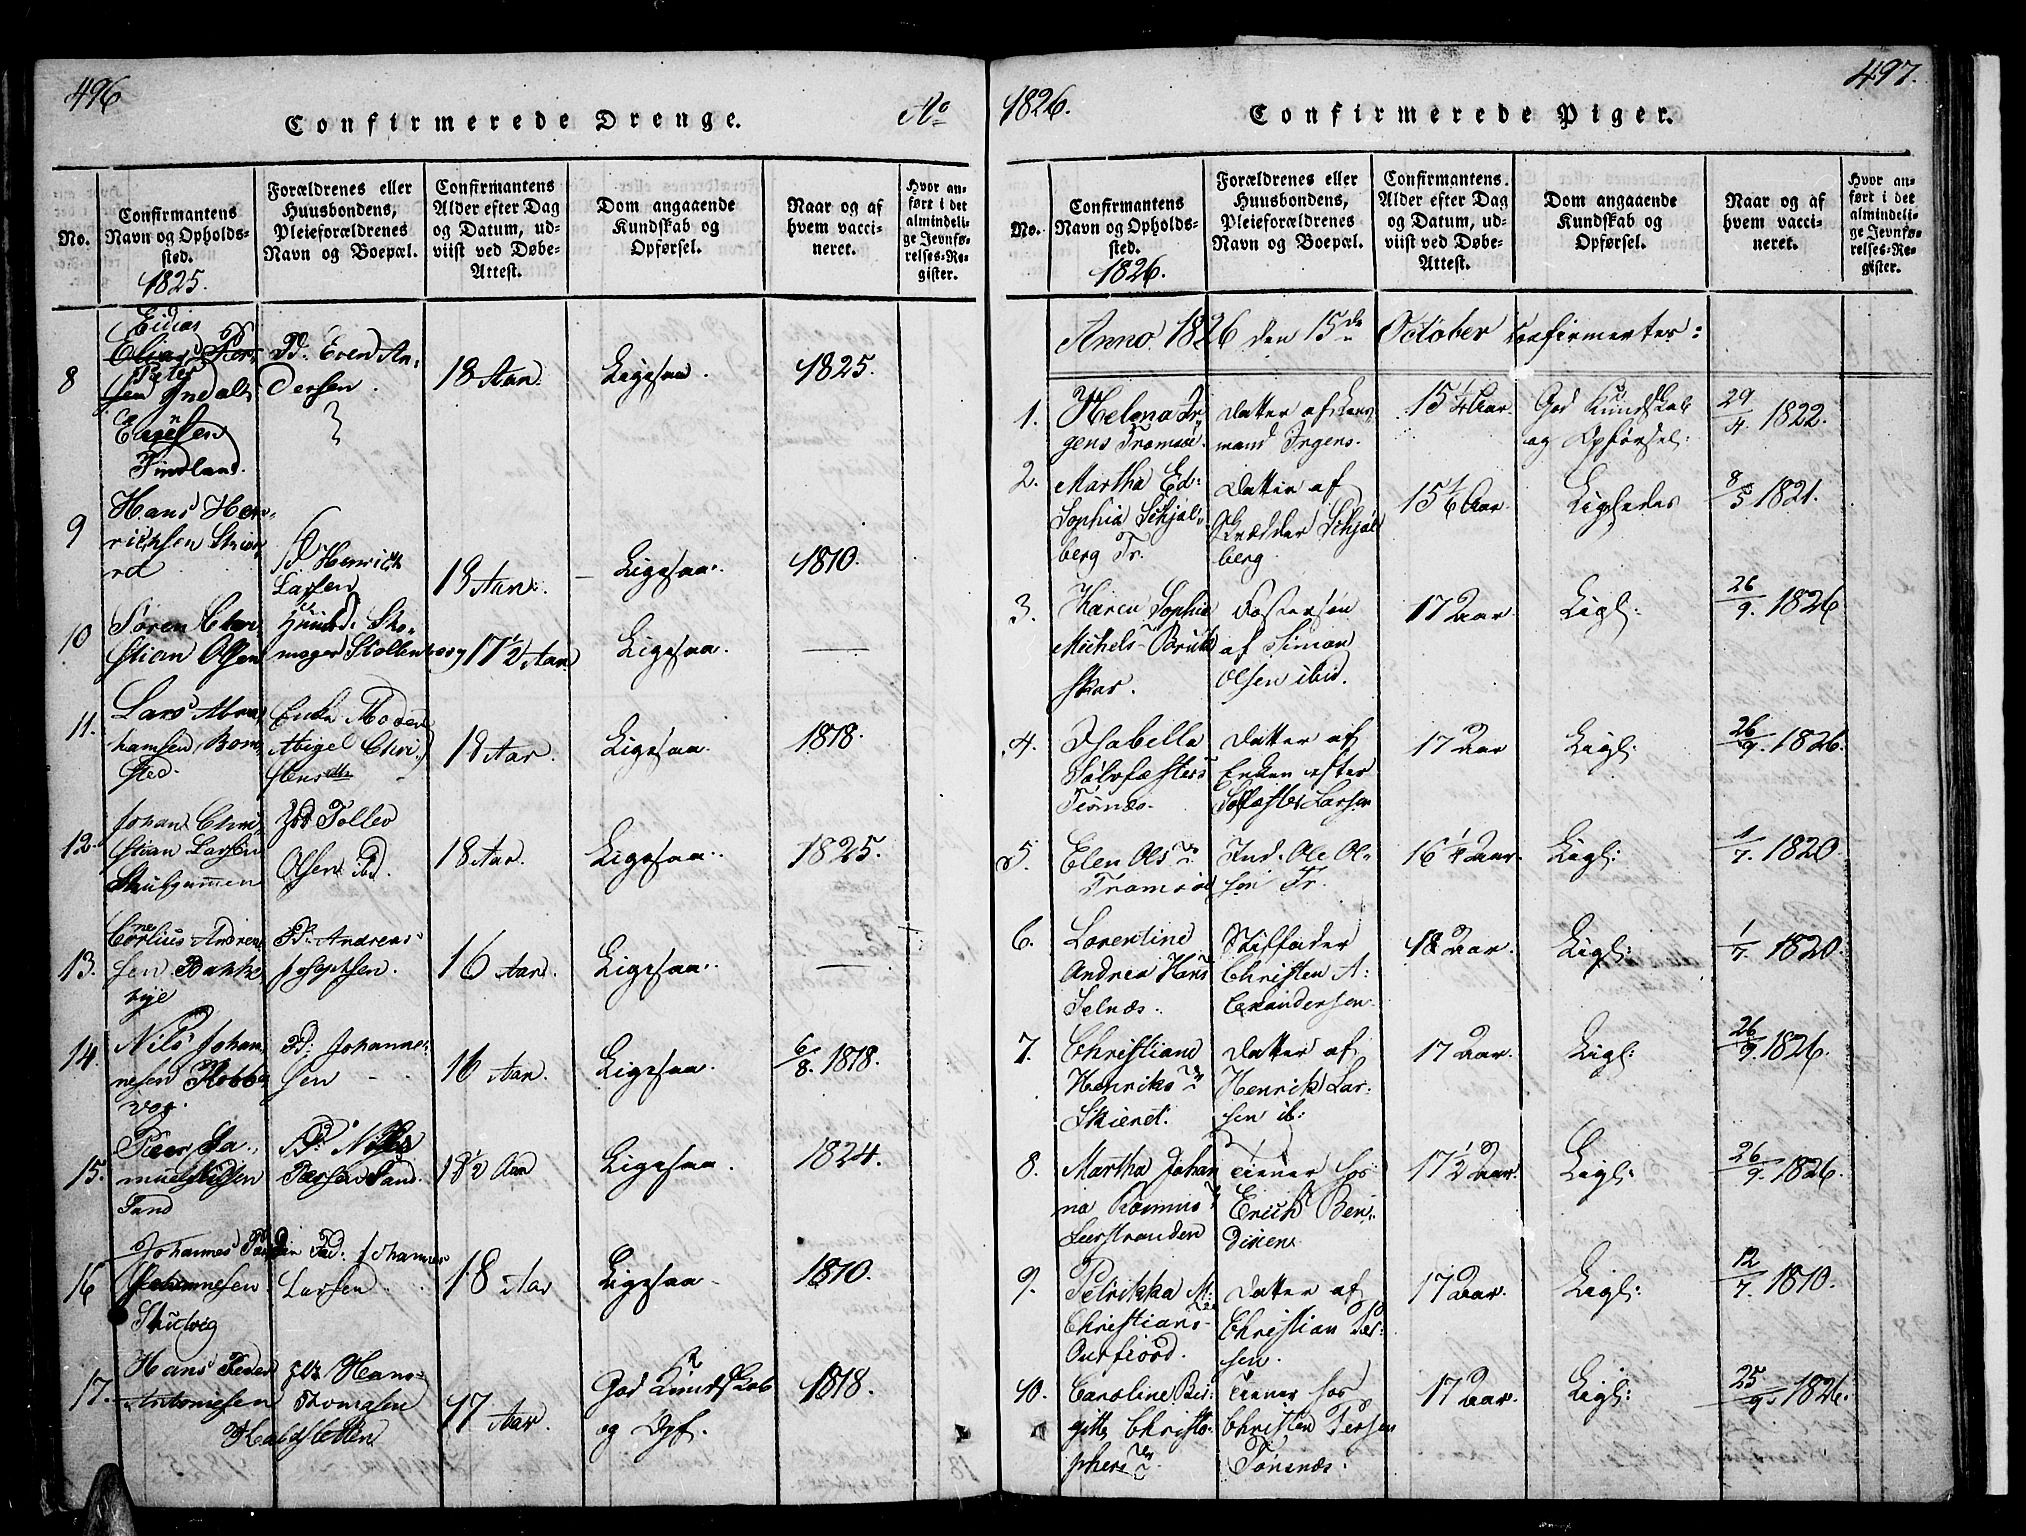 496
Confirmerede Drenge.
Ao
No.
Confirmantens
Navn og Opholds-
sted.
1825.
Forældrenes eller
Huusbondens,
Pleieforældrenes
Navn og Boepæl.
Confirmantens
Alder efter Dag
og Datum, ud-
viist ved Døbe-
Attest.
Dom angaaende
Kundskab og
Opførsel.
Naar og af
hvem vacci-
neret.
Hvor an-
ført i det
almindeli-
ge Jevnfø-
relses-Re-
gister.
8
Peter
Findland.
Even An-
dersen.
18 Aar.
Ligesaa.
1825.
9
Hans Hen-
richsen
Henrich
Larsen
19 Aar.
Ligesaa.
1810.
10
Søren Chri-
stian Olsen
Sko-
mager Stollenberg
17 1/2 Aar
Ligesaa.
11.
Lars Abra-
hamsen, Bom-
sted.
Abigel Chri-
stensdtr
18 Aar.
Ligesaa.
1818.
12.
Johan Chri-
stian Larsen
Skulgammen
Tollev
Olsen ibd.
18 Aar.
Ligesaa.
1825.
13.
Cornelius Andrea-
sen Bakke-
bye
Andreas
Josephsen.
16 Aar.
Ligesaa.
14.
Nils Johan-
nesen Kobbe-
vog.
Johanne-
sen
16 Aar.
Ligesaa.
6/8. 1818.
15.
Peer Sa-
muelsen
Sand
Nils
Persen Sand.
18 1/2 Aar
Ligesaa.
1824.
16
Johannes
Johannesen
Skulvig
Johannes
Larsen
18 Aar
Ligesaa
1810.
17.
Hans Peder
Antonisen
Haldsletten
Hans
Thomasen
17 Aar.
God Kundskab
og Opf.
1818.
497.
1826.
Confirmerede Piger.
No.
Confirmantens
Navn og Opholds-
sted.
1826.
Forældrenes eller
Huusbondens,
Pleieforældrenes
Navn og Boepæl.
Confirmantens.
Alder efter Dag
og Datum, ud-
viist ved Døbe-
Attest.
Dom angaaende
Kundskab og
Opførsel.
Naar og af
hvem vacci-
neret.
Hvor an-
ført i det
almindeli-
ge Jevnfø-
relses-Re-
gister.
Anno 1826 den 15de October Confirmerter:
1.
Helena Ir-
gens Tromsøe.
Datter af Lens-
mand Irgens.
15 1/4 Aar.
God Kundskab
og Opførsel:
29/4. 1822.
2.
Martha Ed:
Sophia Schjel-
berg Tr.
Datter af
Schjel-
berg.
15 1/6 Aar.
Ligeledes
8/5 1821.
3.
Karen Sophia
Michels-
skar.
af Simon
Olsen ibid.
17 Aar
Ligl:
26/9. 1826
4.
Isabella
Sølvfæsters
Tisnæs.
Datter af
Enken efter
Larsen
17 Aar
Ligl:
26/9. 1826.
5.
Elen Ols
Tromsøe
Ind. Ole Ol-
sen Tr.
16 1/4 Aar.
Ligl:
1/7. 1820.
6.
Lorentine
Andrea Hans
Selnæs.
Stiffader
Christen A:
18 Aar.
Ligl:
1/7. 1820.
7.
Christiane
Henriks
Skieret.
Datter af
Henrik Lar-
sen ib:
17 Aar.
Ligl:
26/9. 1826.
8.
Martha Johan-
na Rasmus
Leerstranden
Tiener hos
Erich Ben-
dixen.
17 1/2 Aar.
Ligl:
26/9. 1826.
9.
Petrikka M:
Christians-
Ourfiord.
Datter af
Christian Per-
sen.
17 Aar.
Ligl:
12/7. 1810.
10.
Caroline Bir-
gitte Christo-
phers
Tiener hos
Christen Persen
Tønsnæs.
17 Aar.
Ligl:
25/9. 1826.